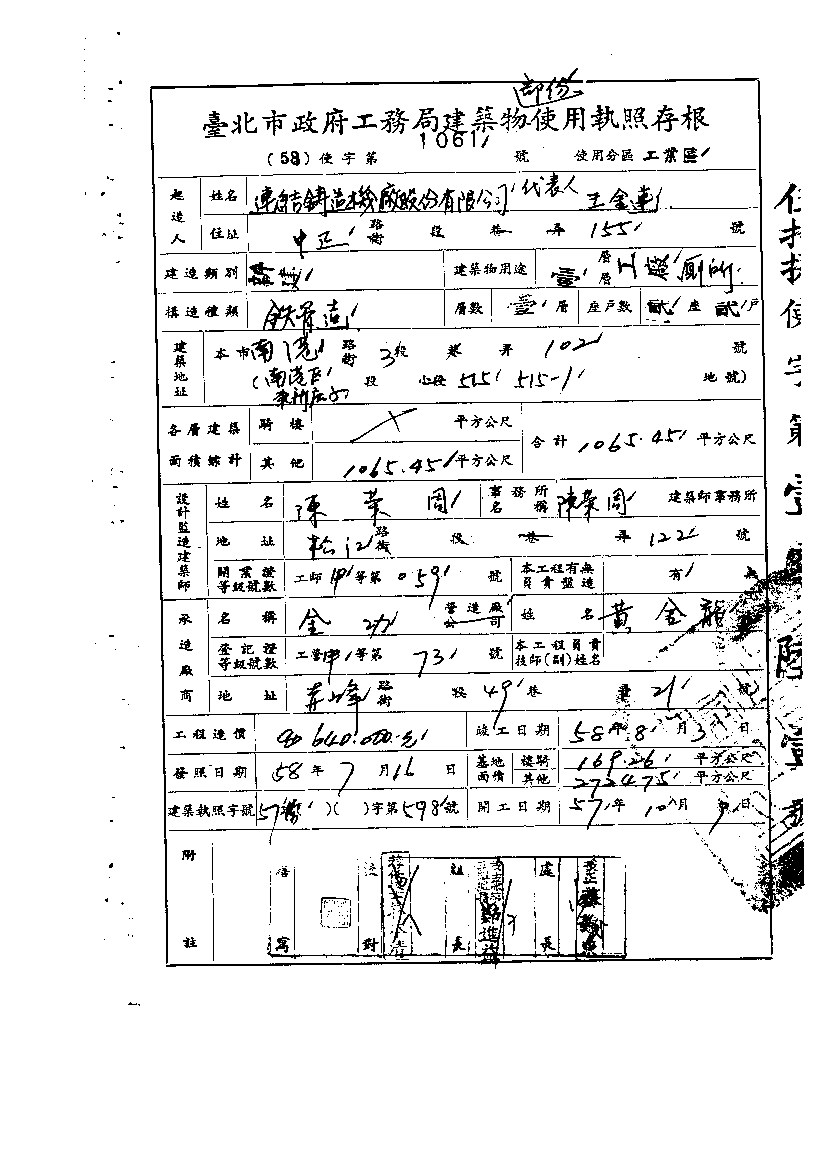 部份
臺北市政府工務局建築物使用執照存根
(58)使字第 1061 號 使用分區 工業區
起造人 姓名 連結鑄造機廠股份有限公司 代表人 王金連
住址 中正 路街 段 巷 弄 155 號
建造類別 建築物用途 壹 層層 廁所
構造種類 鉄骨造 層數 壹 層 座戶數 貳 座 貳 戶
建築地址 本市 南港 路街 3 段 巷 弄 102 號
(南港區 段 小段 515 515-1 地號)
各層建築面積總計 騎樓 平方公尺 合計 1065.45 平方公尺
其他 1065.45 平方公尺
設計監造建築師 姓名 陳榮周 事務所名稱 陳榮周 建築師事務所
地址 松江 路街 段 巷 弄 122 號
開業證等級號數 工師 甲 等第 059 號 本工程有無負責監造 有 無
承造廠商 名稱 金功 營造廠公司 姓名 黃金龍
登記證等級號數 工營 甲 等第 73 號 本工程負責技師(副)姓名
地址 路街 段 49 巷 弄 21 號
工程造價 640.000.元 竣工日期 58 年 8 月 3 日
發照日期 58 年 7 月 16 日 基地面積 樓騎 169.26 平方公尺
其他 2724.75 平方公尺
建築執照字號 57 )( )字第 598 號 開工日期 57 年 10 月 9 日
附註 繕寫 校對 組長 處長
使字第壹 陸壹號